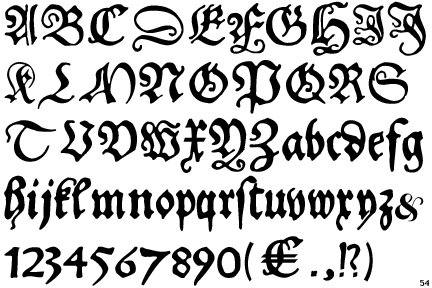 ABCDEFGHIJ
KLMNOPQRS
TUVWXYZabcdefg
hijklmnopqrſtuvwxyz&
1234567890(€.,!?)
54